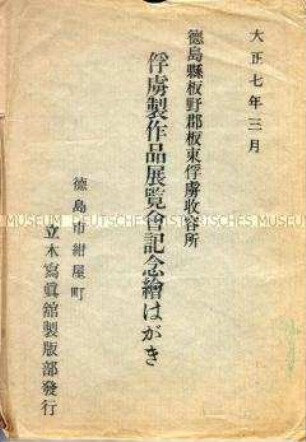 大正七年三月
德島縣板野郡板東俘虜收容所
俘虜製作品展覽會記念繪はがき
德島市紺屋町
立木寫眞舘製版部發行
MUSEUM DEUTSCHES HISTORISCHES MUSEUM